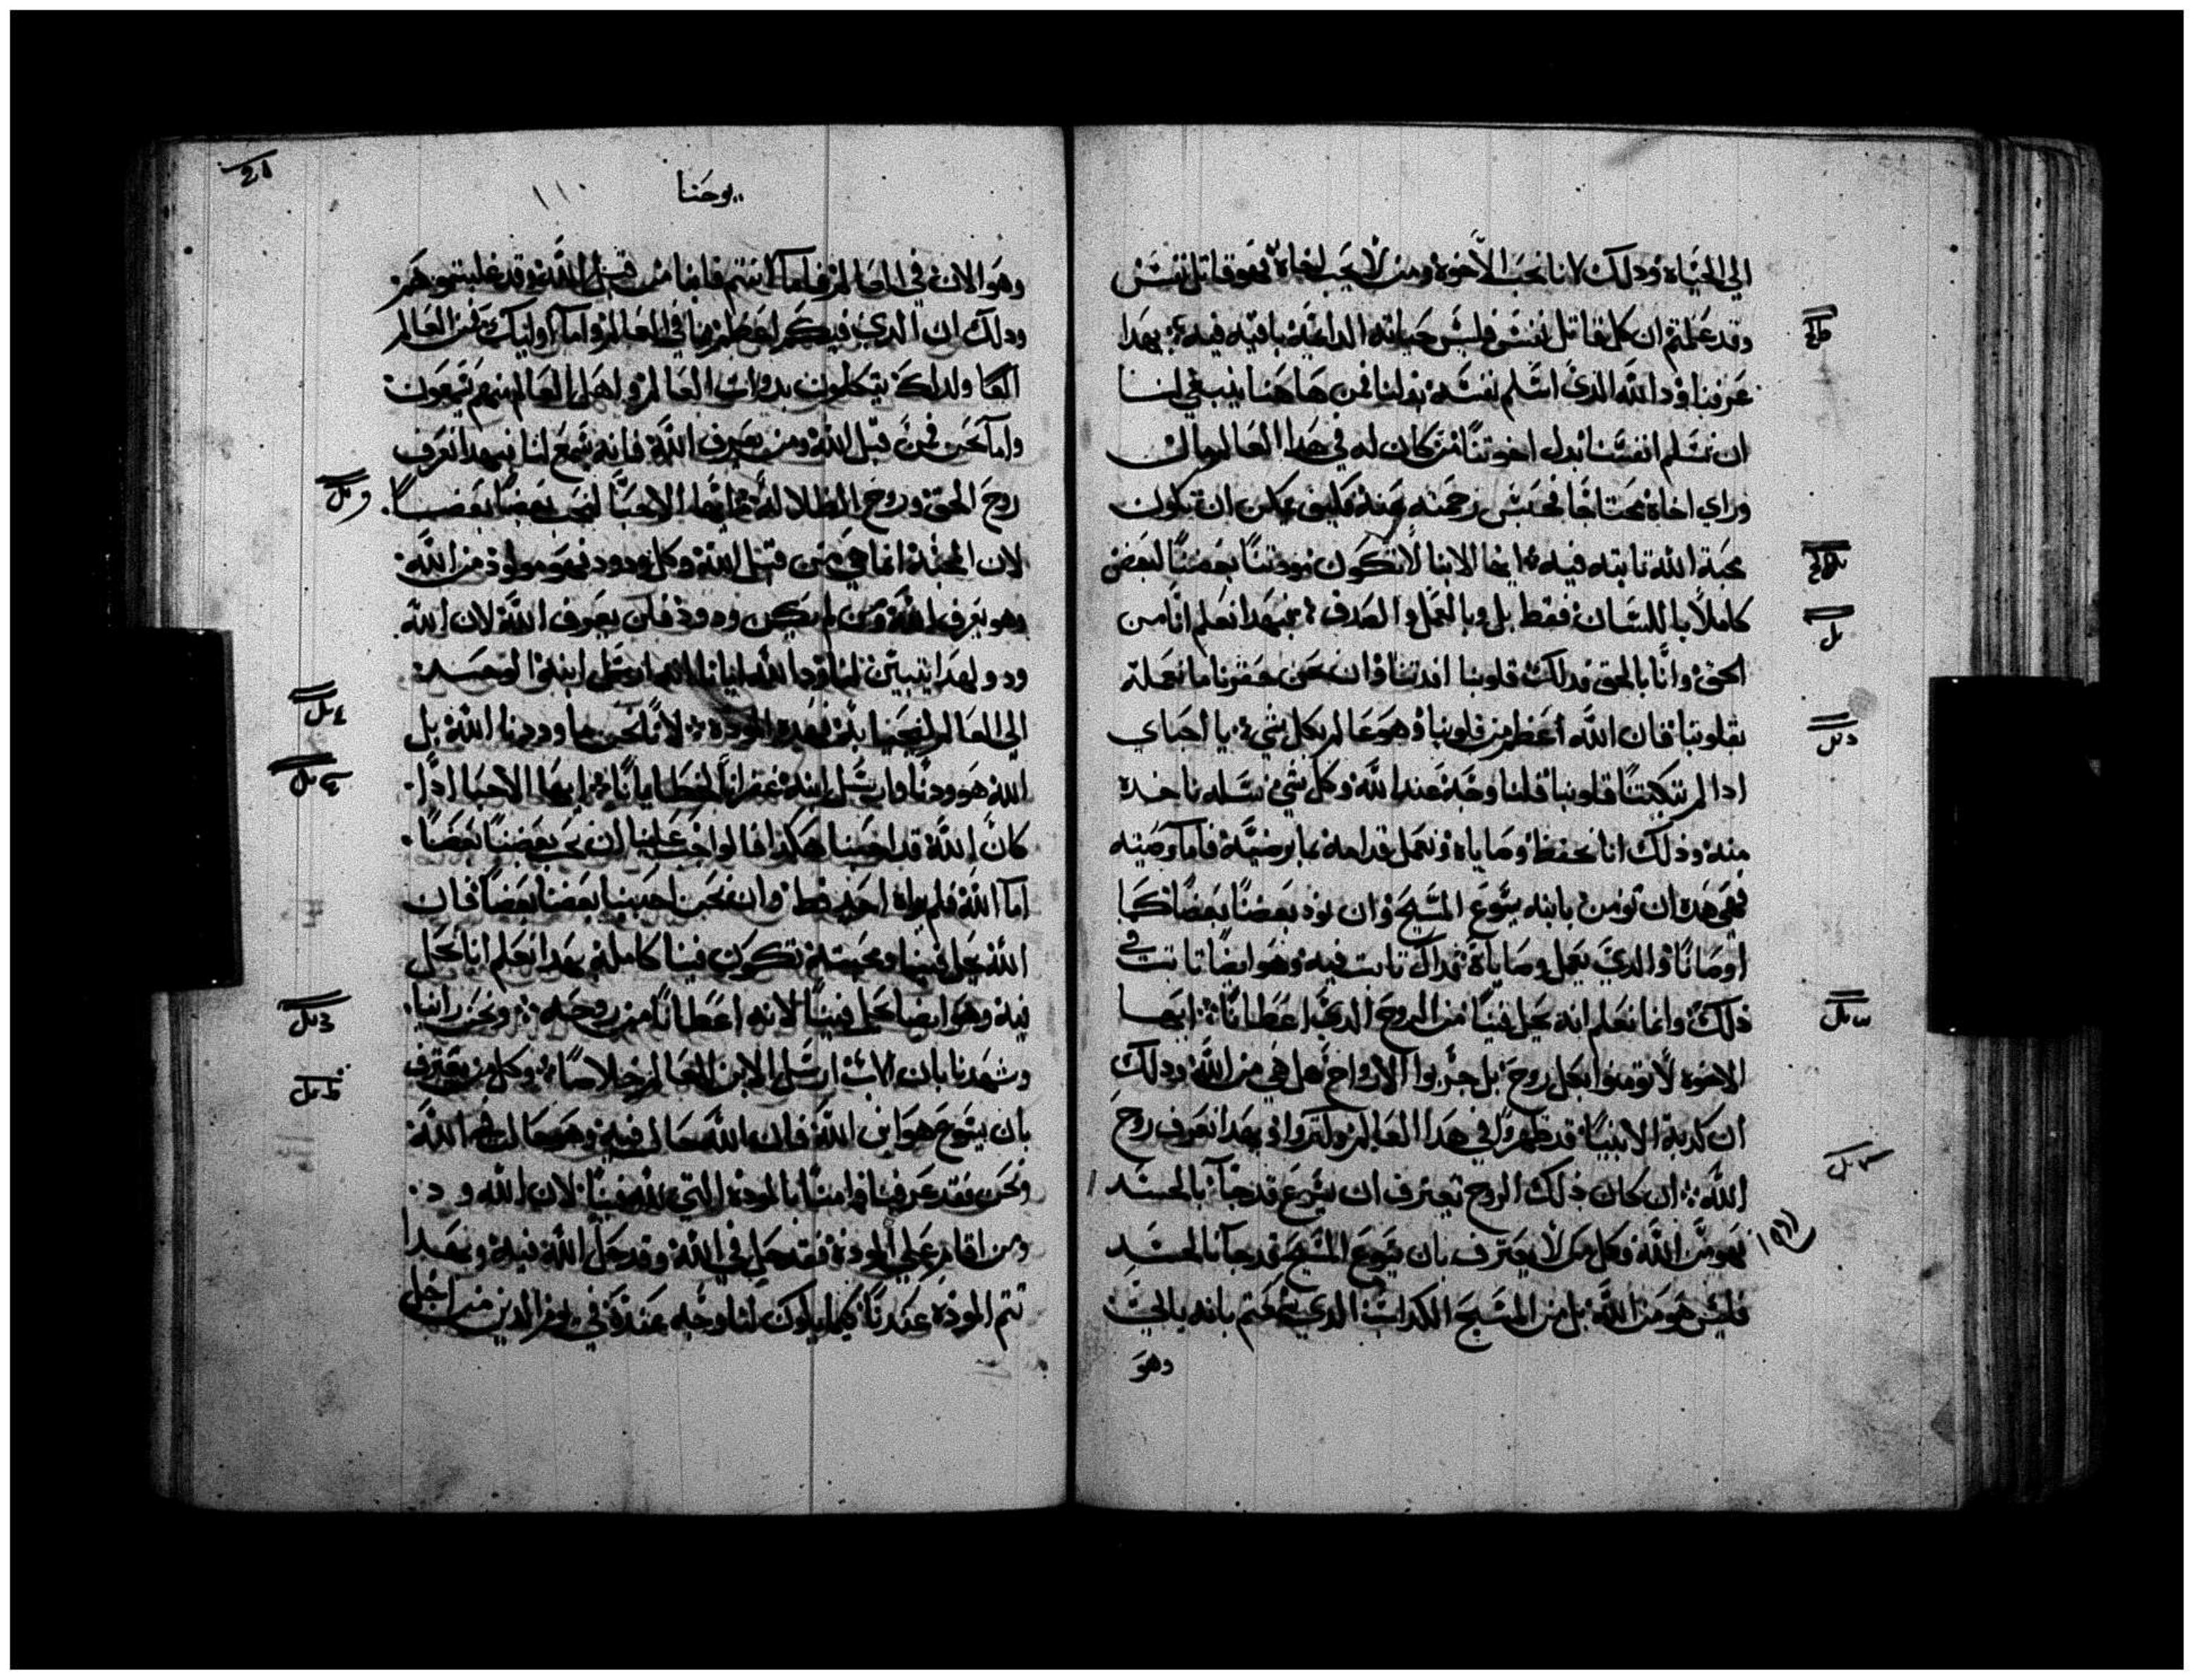 الي الحياة وذلك لانا نحب الاخوة ومن لا يحب اخاه فهو قاتل نفس
وقد علمتم ان كل قاتل نفس فليس حياته الدايمة باقية فيه بهذا
عرفنا ود الله الذي اسلم نفسه بدلنا فمن هاهنا ينبغي لنا
ان نسلم انفسنا بدل اخوتنا من كان له في هدا العالم مال
وراي اخاه محتاجا فحبس رحمته عنه فكيف يمكن ان تكون
محبة الله تابته فيه ايها الابنا لا تكون مودتنا بعضنا لبعض
كاملا باللسان فقط بل وبالعمل والصدق فبهدا نعلم انا من
الحق وانا بالحق قلوبنا وان نحن ما نعمله
بقلوبنا فان الله اعظم من قلوبنا وهو عالم بكل شي يا احباي
ادا لم تبكتنا قلوبنا فلنا وجه عند الله وكل شي نسله ناخده
منه وذلك انا نحفظ وصاياه ونعمل قدامه بما يرضيه فاما وصيته
فهي هده ان نومن بابنه يسوع المسيح وان نود بعضنا بعضا كما
اوصانا والدي يعمل وصاياه فداك تابت فيه وهو ايضا تابت في
ذلك وانما نعلم انه يحل فينا من الروح الدي اعطانا ايها
الاخوة لا تومنوا بكل روح بل جربوا الارواح هل هي من الله ودلك
ان كدبة الانبيا قد ظهروا في هدا العالم وكتروا وبهدا نعرف روح
الله ان كان ذلك الروح تعترف ان يسوع قد جا بالجسد
فهو من الله وكل من لا يعترف بان يسوع المسيح قد جا بالجسد
فليس هو من الله بل من المسيح الكداب الدي سمعتم بانه ياتي
وهو
يوحنا
١١٠
وهو الان في العالم فاما انتم فانما من قبل الله وقد غلبتموهم
ودلك ان الدي فيكم اعظم مما في العالم واما اوليك فمن العالم
ولداك يتكلمون بدوات العالم واهل العالم منهم يسمعون
واما نحن فمن قبل الله ومن يعرف الله فانه يسمع لنا فبهدا نعرف
روح الحق وروح الظلاله ايها الاحبا لنحب بعضنا بعضا
لان المحبة انما هي من قبل الله وكل ودود فهو مولود من الله
وهو يعرف الله ومن لم يكن ودود فلن يعرف الله لان الله
ود ولهدا يتبين لنا ود الله ايانا لانه ارسل ابنه الوحيد
الي العالم لنحيا به فهده المودة لانا نحن ما وددنا الله بل
الله هو ودنا وارسل ابنه غفرانا لخطايانا ايها الاحبا ادا
كان الله قد احبنا هكدا فالواجب علينا ان نحب بعضنا بعضا
اما الله فلم يراه احد قط وان نحن احببنا بعضنا بعضا فان
الله يحل فينا ومحبته تكون فينا كاملة بهدا نعلم انا نحل
فيه وهو ايضا يحل فينا لانه اعطانا من روحه ونحن راينا
وشهدنا بان الاب ارسل الابن للعالم خلاصا وكل من يعترف
بان يسوع هو ابن الله فان الله حال فيه وهو حال في الله
ونحن فقد عرفنا وامنا بالمودة التي لله فينا لان الله ود
ومن اقام علي المودة فقد حل في الله وقد حل الله فيه وبهدا
تتم المودة عندنا كيما يكون لنا وجه عنده في يوم الدين من اجل